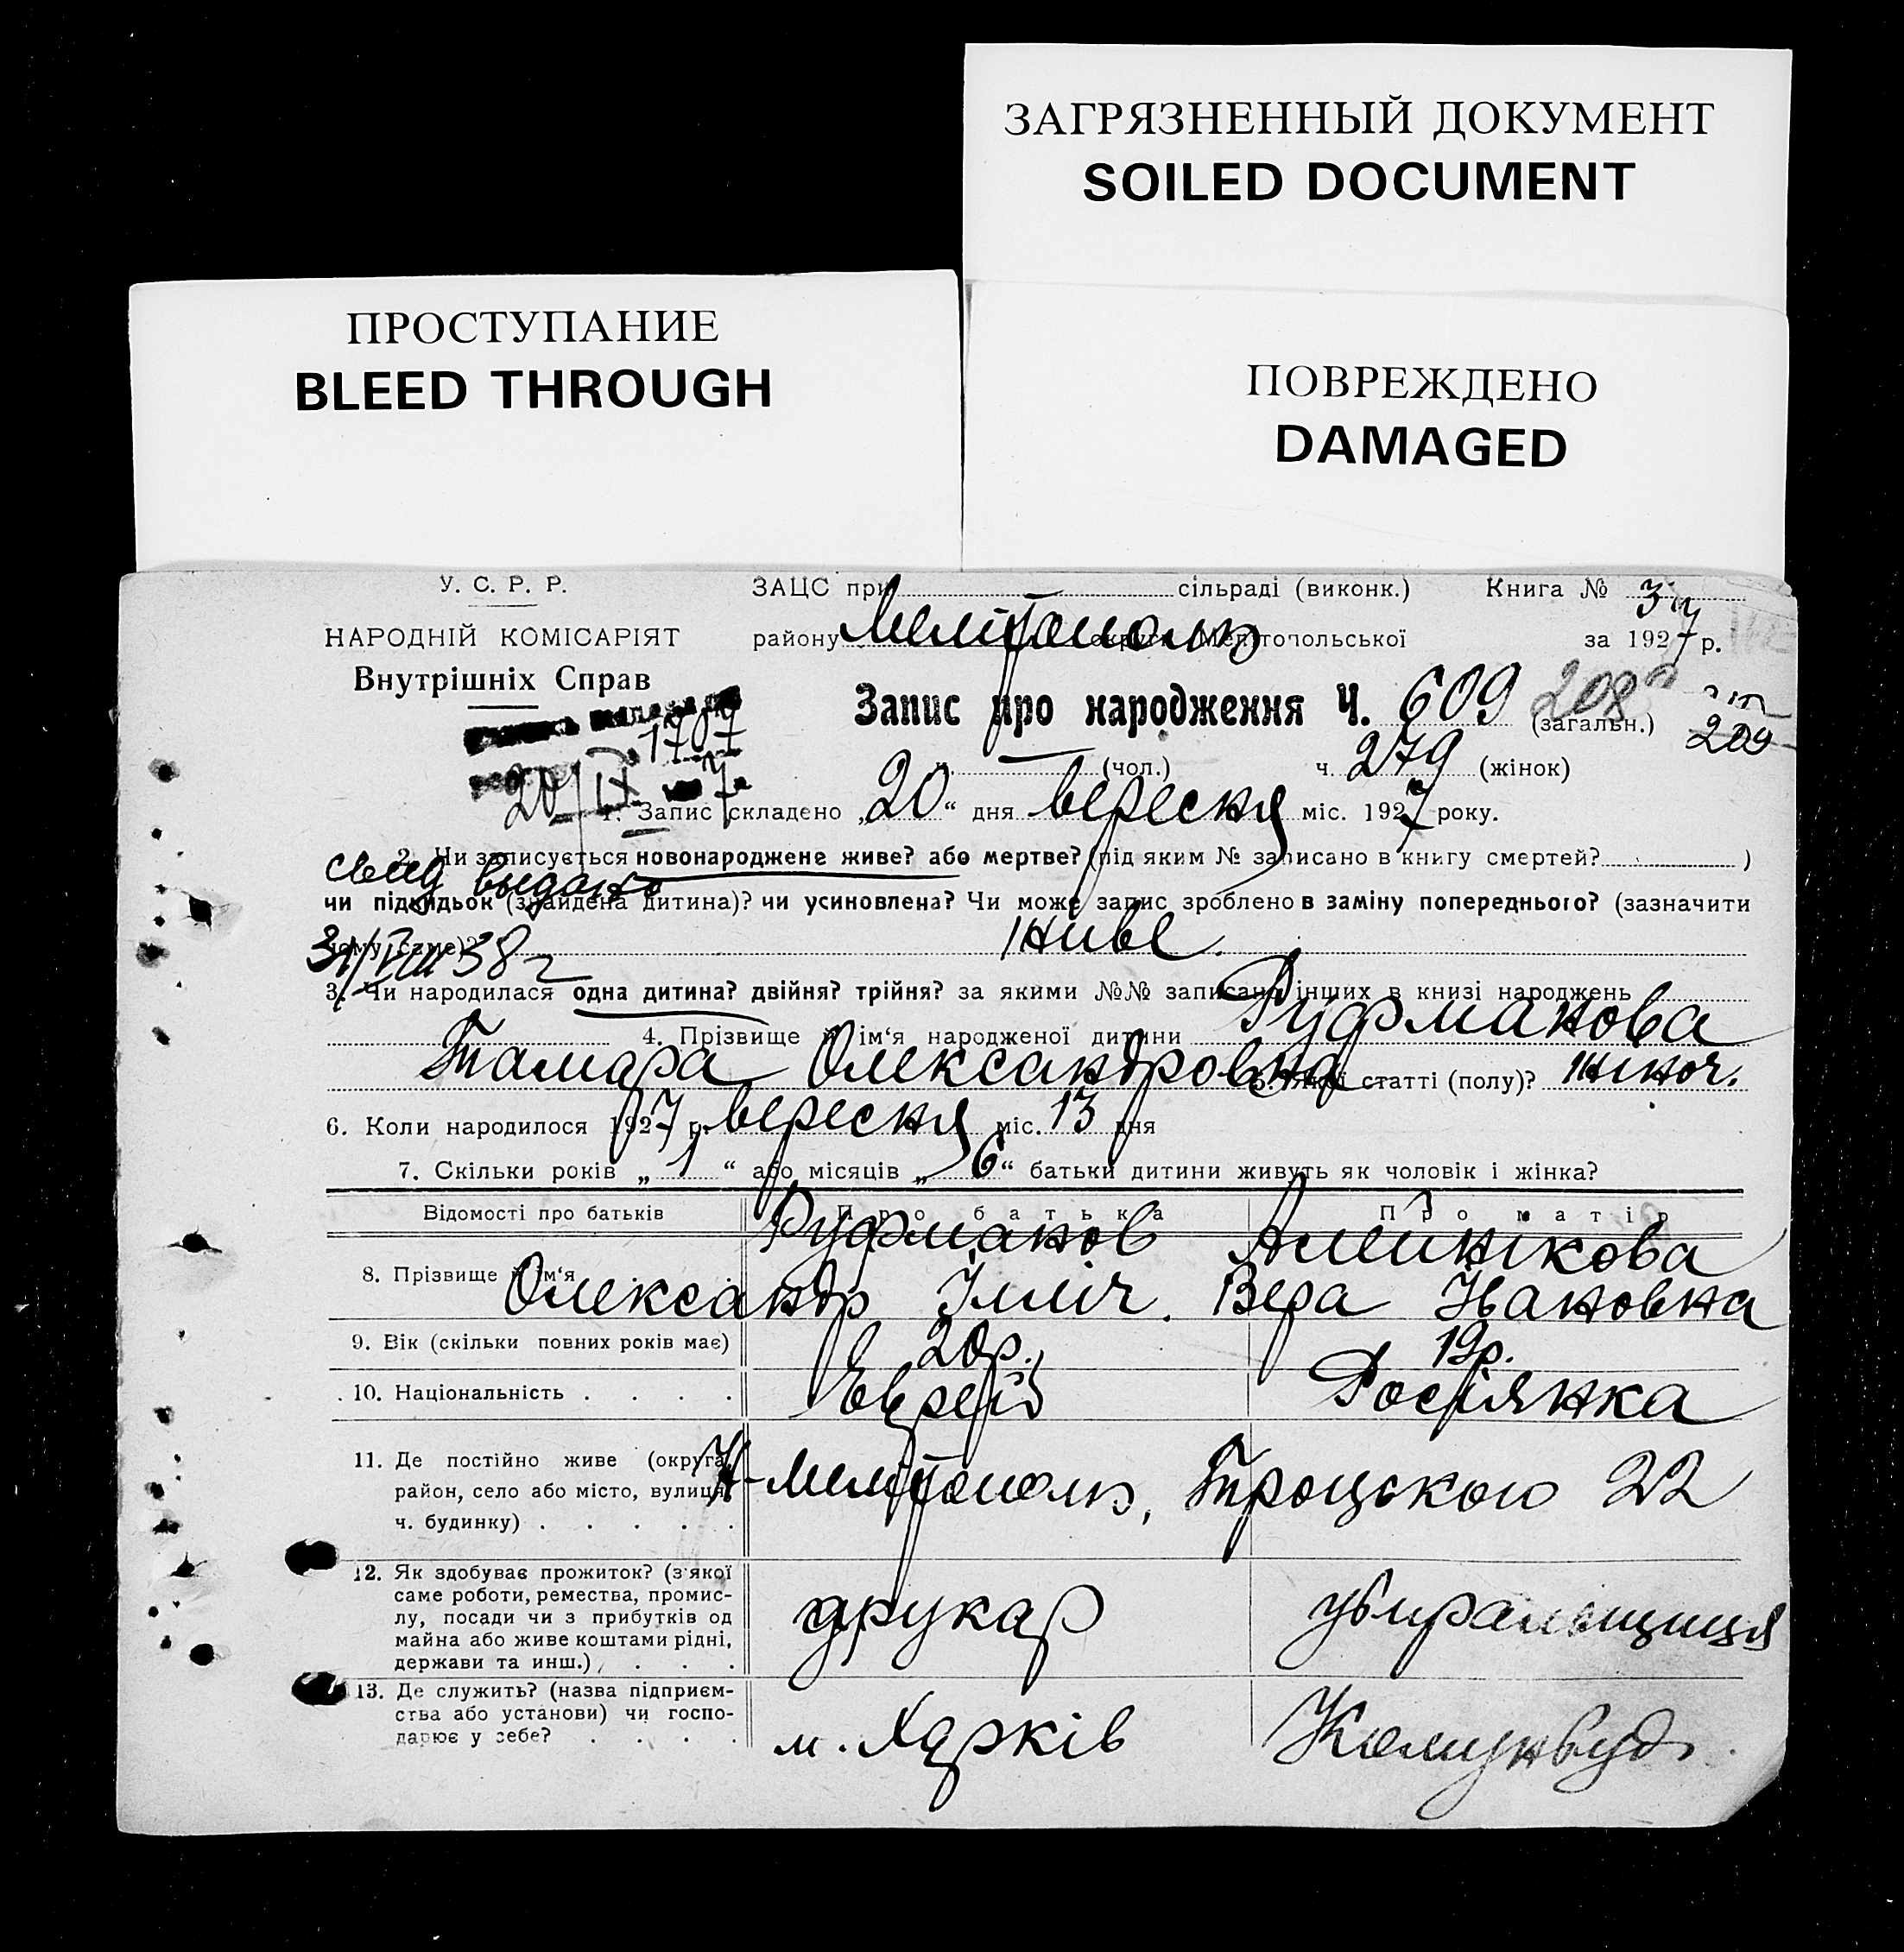 ЗАГРЯЗНЕННЫЙ ДОКУМЕНТ
SOILED DOCUMENT
ПРОСТУПАНИЕ
BLEED THROUGH
ПОВРЕЖДЕНО
DAMAGED
У. С. Р. Р.
НАРОДНІЙ КОМІСАРІЯТ
Внутрішніх Справ
ЗАЦС при сільраді (виконк.) Книга № 3
району Мелітополь округи Мелітопольської за 1927 р.
Запис про народження Ч. 609 (загальн.) 208
209
1707
ч. — (чол.) ч. 279 (жінок)
20/IX 7
1. Запис складено „20“ дня вересня міс. 1927 року.
2. Чи записується новонароджене живе? або мертве? (під яким № записано в книгу смертей? )
свид выдано
чи підкидьок (знайдена дитина)? чи усиновлена? Чи може запис зроблено в заміну попереднього? (зазначити
чому саме)? живе.
31/VIII 38 г
3. Чи народилася одна дитина? двійня? трійня? за якими №№ записано інших в книзі народжень
4. Прізвище й ім‘я народженої дитини Руфманова
Тамара Олександровна статті (полу)? жіноч.
6. Коли народилося 1927 р. вересня міс. 13 дня
7. Скільки років „ 1 “ або місяців „ 6 “ батьки дитини живуть як чоловік і жінка?
Відомості про батьків Про батька Про матір
8. Прізвище й ім‘я
Руфманов
Олександр Ілліч.
Алейнікова
Вера Івановна
9. Вік (скільки повних років має) 20р. 19р.
10. Національність . . . . Еврей Росіянка
11. Де постійно живе (округа,
район, село або місто, вулиця,
ч. будинку) . . . . .
Мелітополь, Троцького 22
12. Як здобуває прожиток? (з якої
саме роботи, ремества, промис-
лу, посади чи з прибутків од
майна або живе коштами рідні,
держави та инш.) . . .
друкар
убиральщиця
13. Де служить? (назва підприєм-
ства або установи) чи госпо-
дарює у себе? . . . .
м. Харків
Комунбуд.